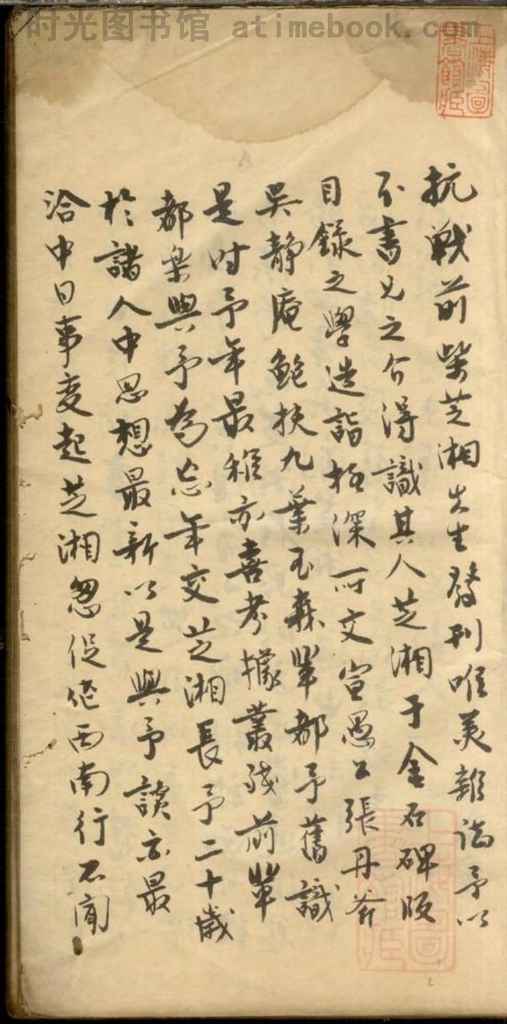 时光图书馆 atimebook.com
抗戰前柴芝湘先生發刊唯美雜誌予以
不書兄之介得識其人芝湘于金石碑版
目錄之學造詣極深所交宣愚公張丹斧
吳靜庵鮑扶九葉玉森輩都予舊識
是時予年最稚亦喜考據叢殘前輩
都樂與予為忘年交芝湘長予二十歲
於諸人中思想最新以是與予談亦最
洽中日事变起芝湘悤促作西南行不聞